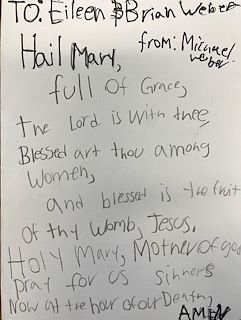 TO: Eileen & Brian Weber
from: Michael
weber
Hail Mary,
full Of Grace,
the Lord is with thee
Blessed art thou among
Women,
and blessed is the fruit
of thy Womb, Jesus.
Holy Mary, Mother of god
Pray for us sinners
Now at the hour of our Death,
AMEN